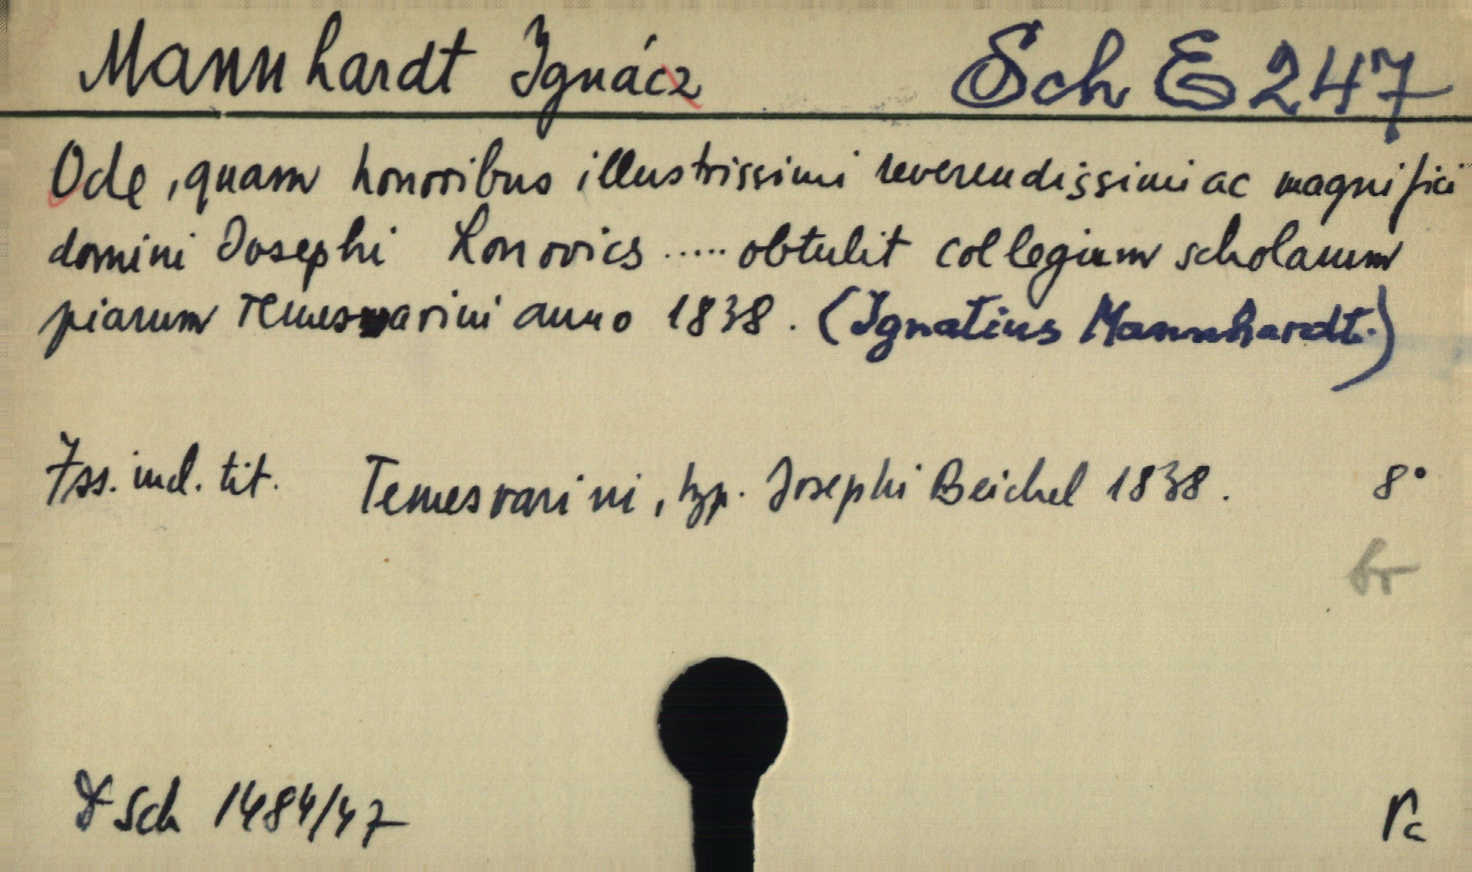 Mannhardt Ignácz Sch E 247
Ode, quam honoribus illustrissimi reverendissimi ac magnifici
domini Josephi Lonovics ..... obtulit collegium scholarum
piarum Temesvarini anno 1838. (Ignatius Mannhardt.)
7 ss. incl. tit. Temesvarini, typ. Josephi Beichel 1838. 8°
br
Sch 1484/47